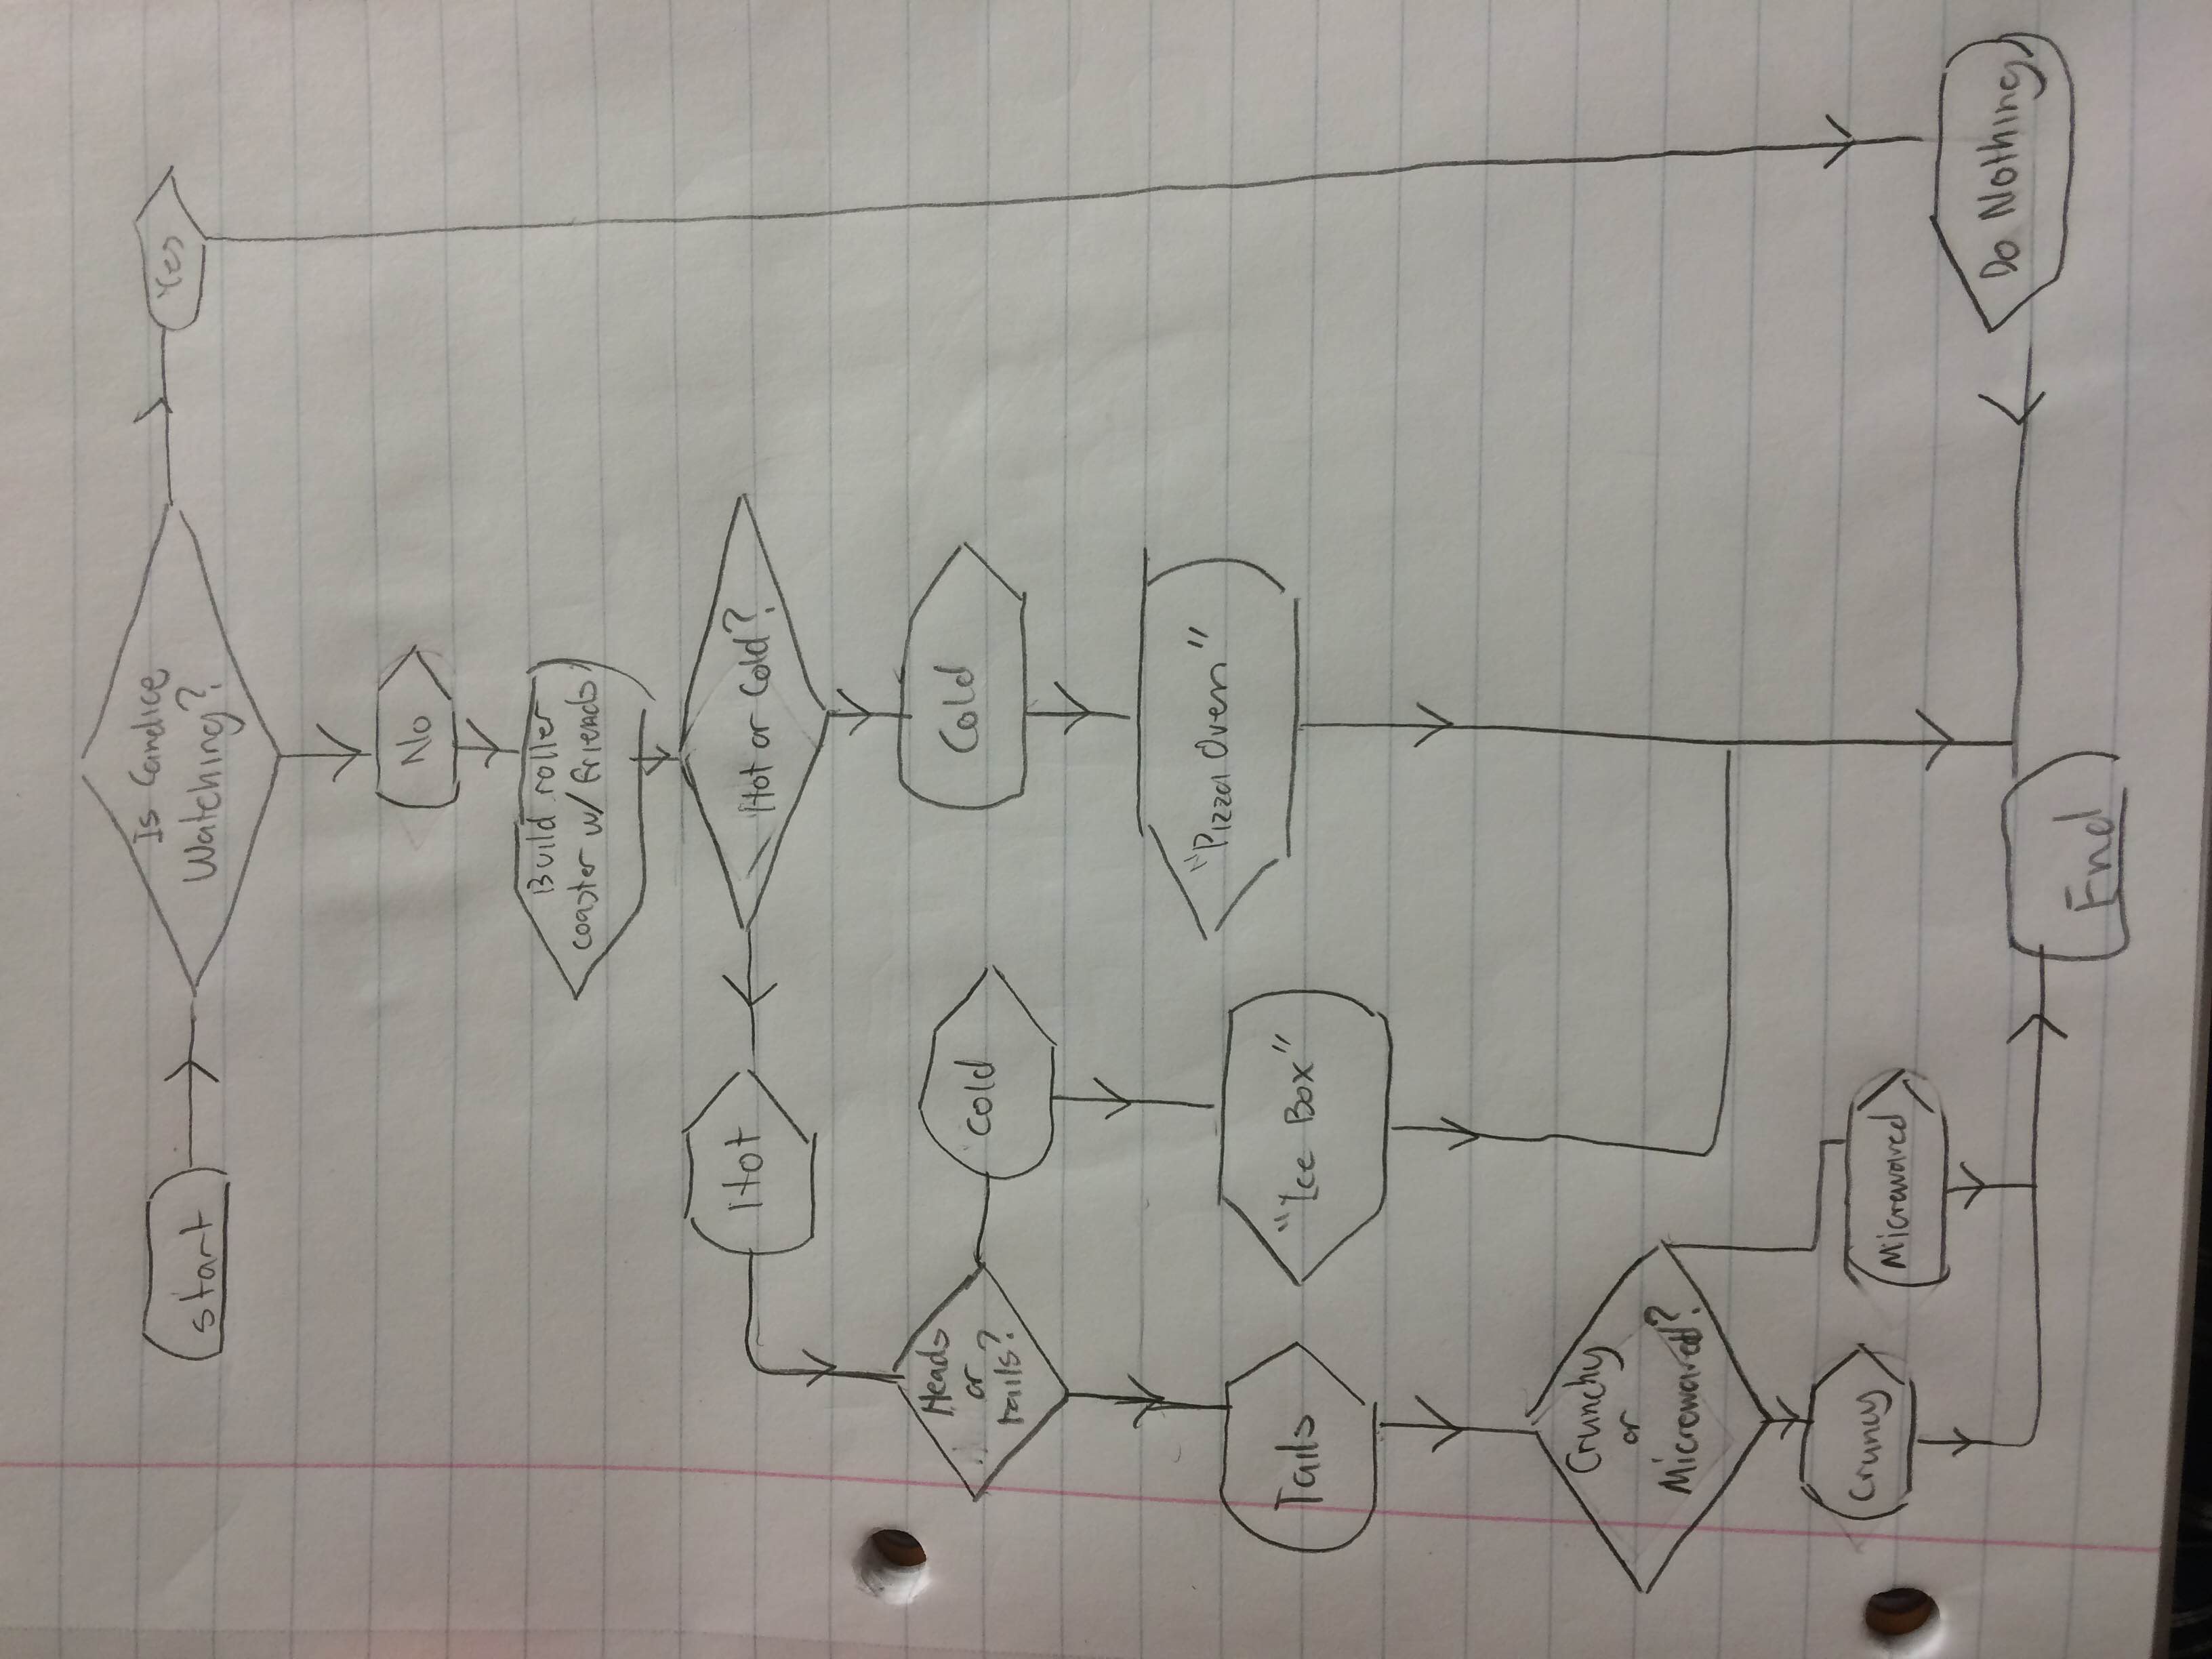 start
Is Candice
Watching?
Yes
No
Build roller
coaster w/ friends
Hot
Hot or Cold?
Heads
or
tails?
cold
Cold
"Pizza Oven"
Tails
"Ice Box"
Crunchy
or
Microwaved?
Cruncy
Microwaved
Do Nothing
End